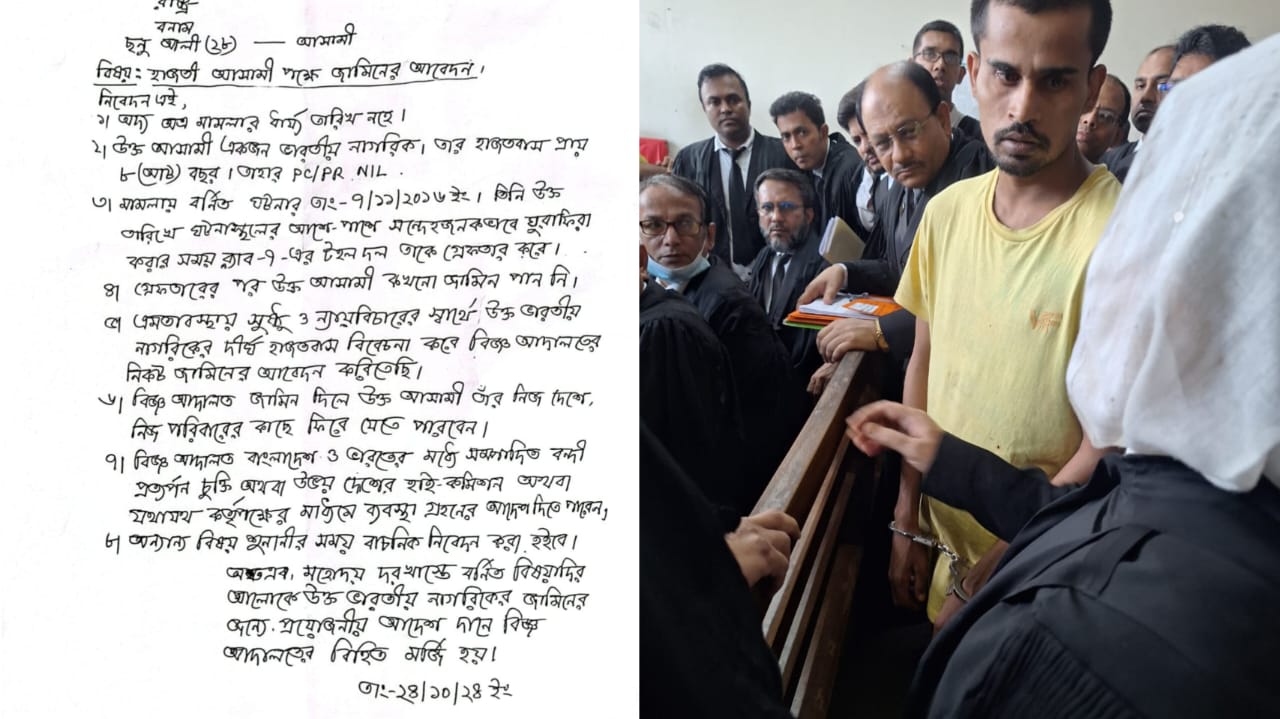 রাষ্ট্র
বনাম
ছনু আলী (২৮) — আসামী
বিষয়: হাজতী আসামী পক্ষে জামিনের আবেদন।
নিবেদন এই,
১। অদ্য অত্র মামলার ধার্য্য তারিখ নহে।
২। উক্ত আসামী একজন ভারতীয় নাগরিক, তার হাজতবাস প্রায়
৮ (আট) বছর। তাহার PC/PR NIL.
৩। মামলায় বর্নিত ঘটনার তাং- ৭/১১/২০১৬ ইং। তিনি উক্ত
তারিখে ঘটনাস্থলের আশে-পাশে সন্দেহজনকভাবে ঘুরাফিরা
করার সময় র‍্যাব-৭-এর টহল দল তাকে গ্রেফতার করে।
৪। গ্রেফতারের পর উক্ত আসামী কখনো জামিন পান নি।
৫। এমতাবস্থায় সুষ্ঠু ও ন্যায়বিচারের স্বার্থে উক্ত ভারতীয়
নাগরিকের দীর্ঘ হাজতবাস বিবেচনা করে বিজ্ঞ আদালতের
নিকট জামিনের আবেদন করিতেছি।
৬। বিজ্ঞ আদালত জামিন দিলে উক্ত আসামী তাঁর নিজ দেশে,
নিজ পরিবারের কাছে ফিরে যেতে পারবেন।
৭। বিজ্ঞ আদালত বাংলাদেশ ও ভারতের মধ্যে সম্পাদিত বন্দী
প্রত্যর্পন চুক্তি অথবা উভয় দেশের হাই-কমিশন অথবা
যথাযথ কর্তৃপক্ষের মাধ্যমে ব্যবস্থা গ্রহনের আদেশ দিতে পারেন,
৮। অন্যান্য বিষয় শুনানীর সময় বাচনিক নিবেদন করা হইবে।
অতএব, মহোদয় দরখাস্তে বর্নিত বিষয়াদির
আলোকে উক্ত ভারতীয় নাগরিকের জামিনের
জন্যে প্রয়োজনীয় আদেশ দানে বিজ্ঞ
আদালতের বিহিত মর্জি হয়।
তাং-২৪/১০/২৪ ইং